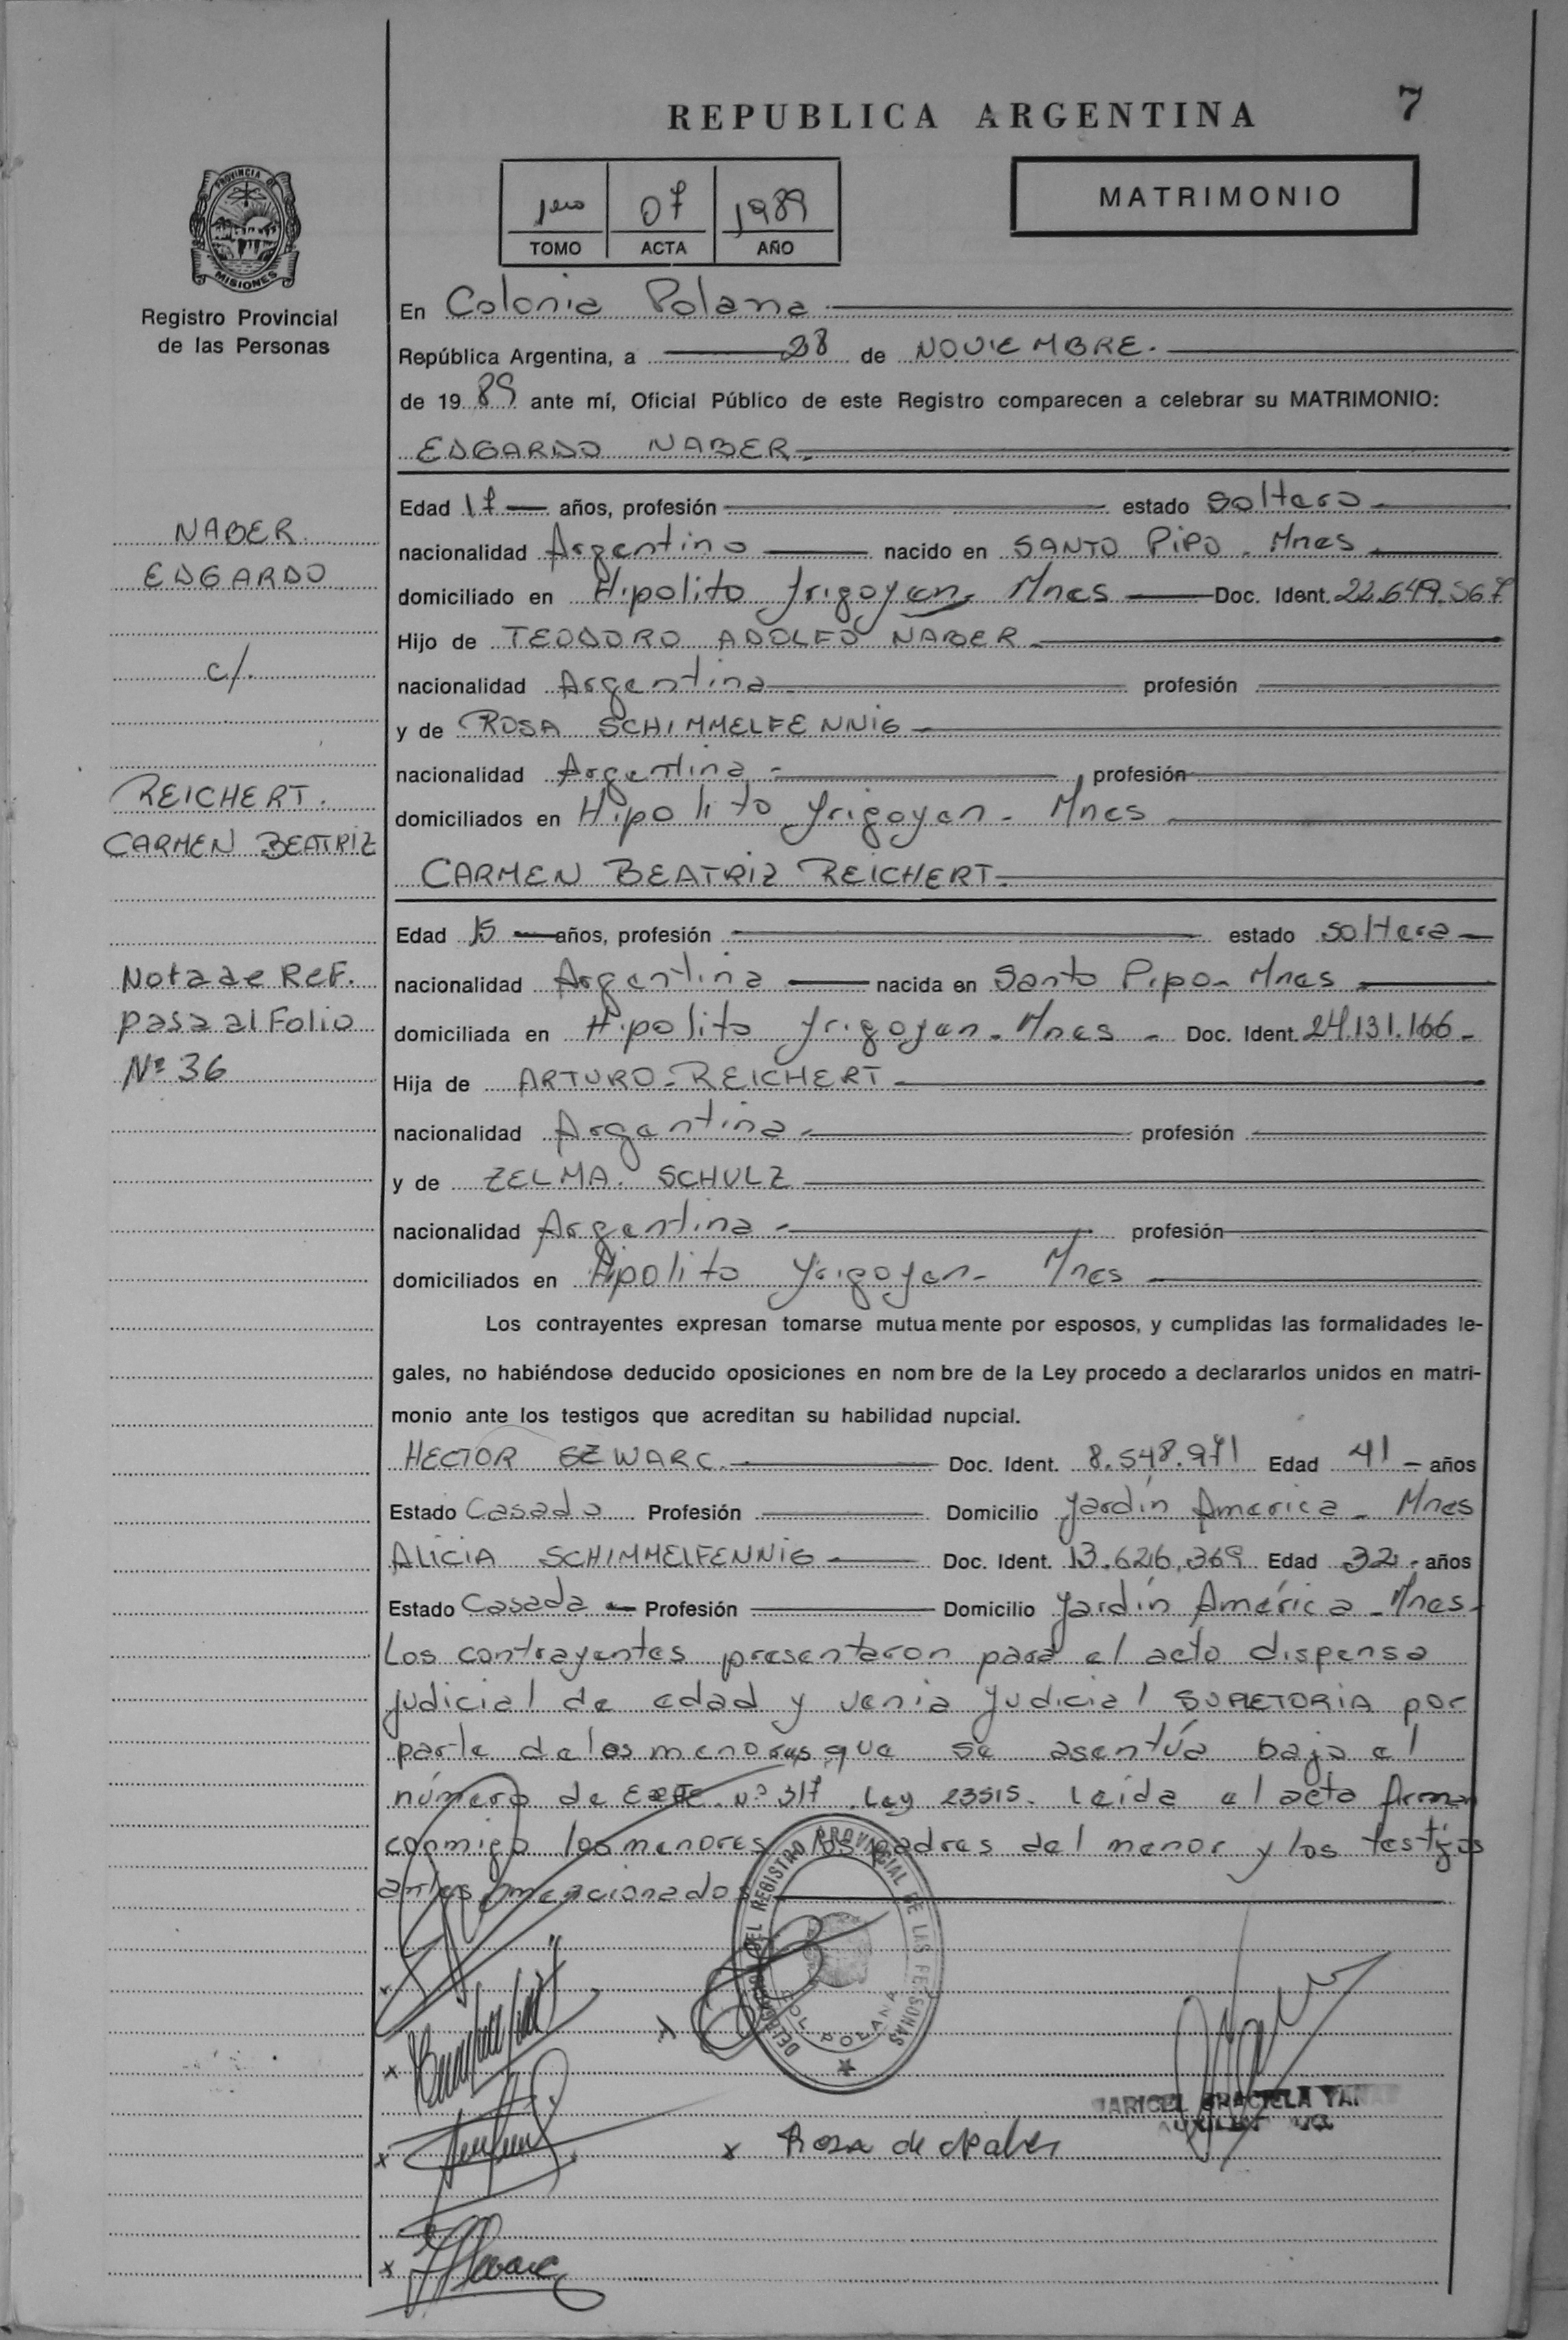 REPUBLICA ARGENTINA
7
PROVINCIA DE
MISIONES
Registro Provincial
de las Personas
1ero 07 1989
TOMO ACTA AÑO
MATRIMONIO
En Colonia Polana
República Argentina, a 28 de NOVIEMBRE.
de 1989 ante mí, Oficial Público de este Registro comparecen a celebrar su MATRIMONIO:
EDGARDO NABER.
Edad 17 años, profesión estado soltero
nacionalidad Argentino nacido en SANTO PIPO - Mnes
domiciliado en Hipolito Yrigoyen - Mnes Doc. Ident. 22.649.567
Hijo de TEODORO ADOLFO NABER
nacionalidad Argentina profesión
y de ROSA SCHIMMELFENNIG
nacionalidad Argentina - profesión
domiciliados en Hipolito Yrigoyen - Mnes
CARMEN BEATRIZ REICHERT.
Edad 15 años, profesión estado soltera
nacionalidad Argentina nacida en Santo Pipo - Mnes
domiciliada en Hipolito Yrigoyen - Mnes - Doc. Ident. 24.131.166 -
Hija de ARTURO - REICHERT
nacionalidad Argentina - profesión
y de ZELMA. SCHULZ
nacionalidad Argentina - profesión
domiciliados en Hipolito Yrigoyen - Mnes
NABER
EDGARDO
c/.
REICHERT.
CARMEN BEATRIZ
Nota de Ref.
pasa al Folio
Nº 36
Los contrayentes expresan tomarse mutuamente por esposos, y cumplidas las formalidades le-
gales, no habiéndose deducido oposiciones en nombre de la Ley procedo a declararlos unidos en matri-
monio ante los testigos que acreditan su habilidad nupcial.
HECTOR SEWARC. Doc. Ident. 8.548.971 Edad 41 - años
Estado Casado Profesión Domicilio Jardín America - Mnes
ALICIA SCHIMMELFENNIG Doc. Ident. 13.626.369 Edad 32 - años
Estado Casada - Profesión Domicilio Jardín América - Mnes -
Los contrayentes presentaron para el acto dispensa
judicial de edad y venia judicial SUPLETORIA por
parte de los menores que se asentúa bajo el
número de EXPTE. Nº 317 Ley 23515. Leida el acta firman
conmigo los menores los padres del menor y los testigos
antes mencionados
DELEGACION DEL REGISTRO PROVINCIAL DE LAS PERSONAS
COL POLANA
x Rosa de Naber
MARICEL GRACIELA